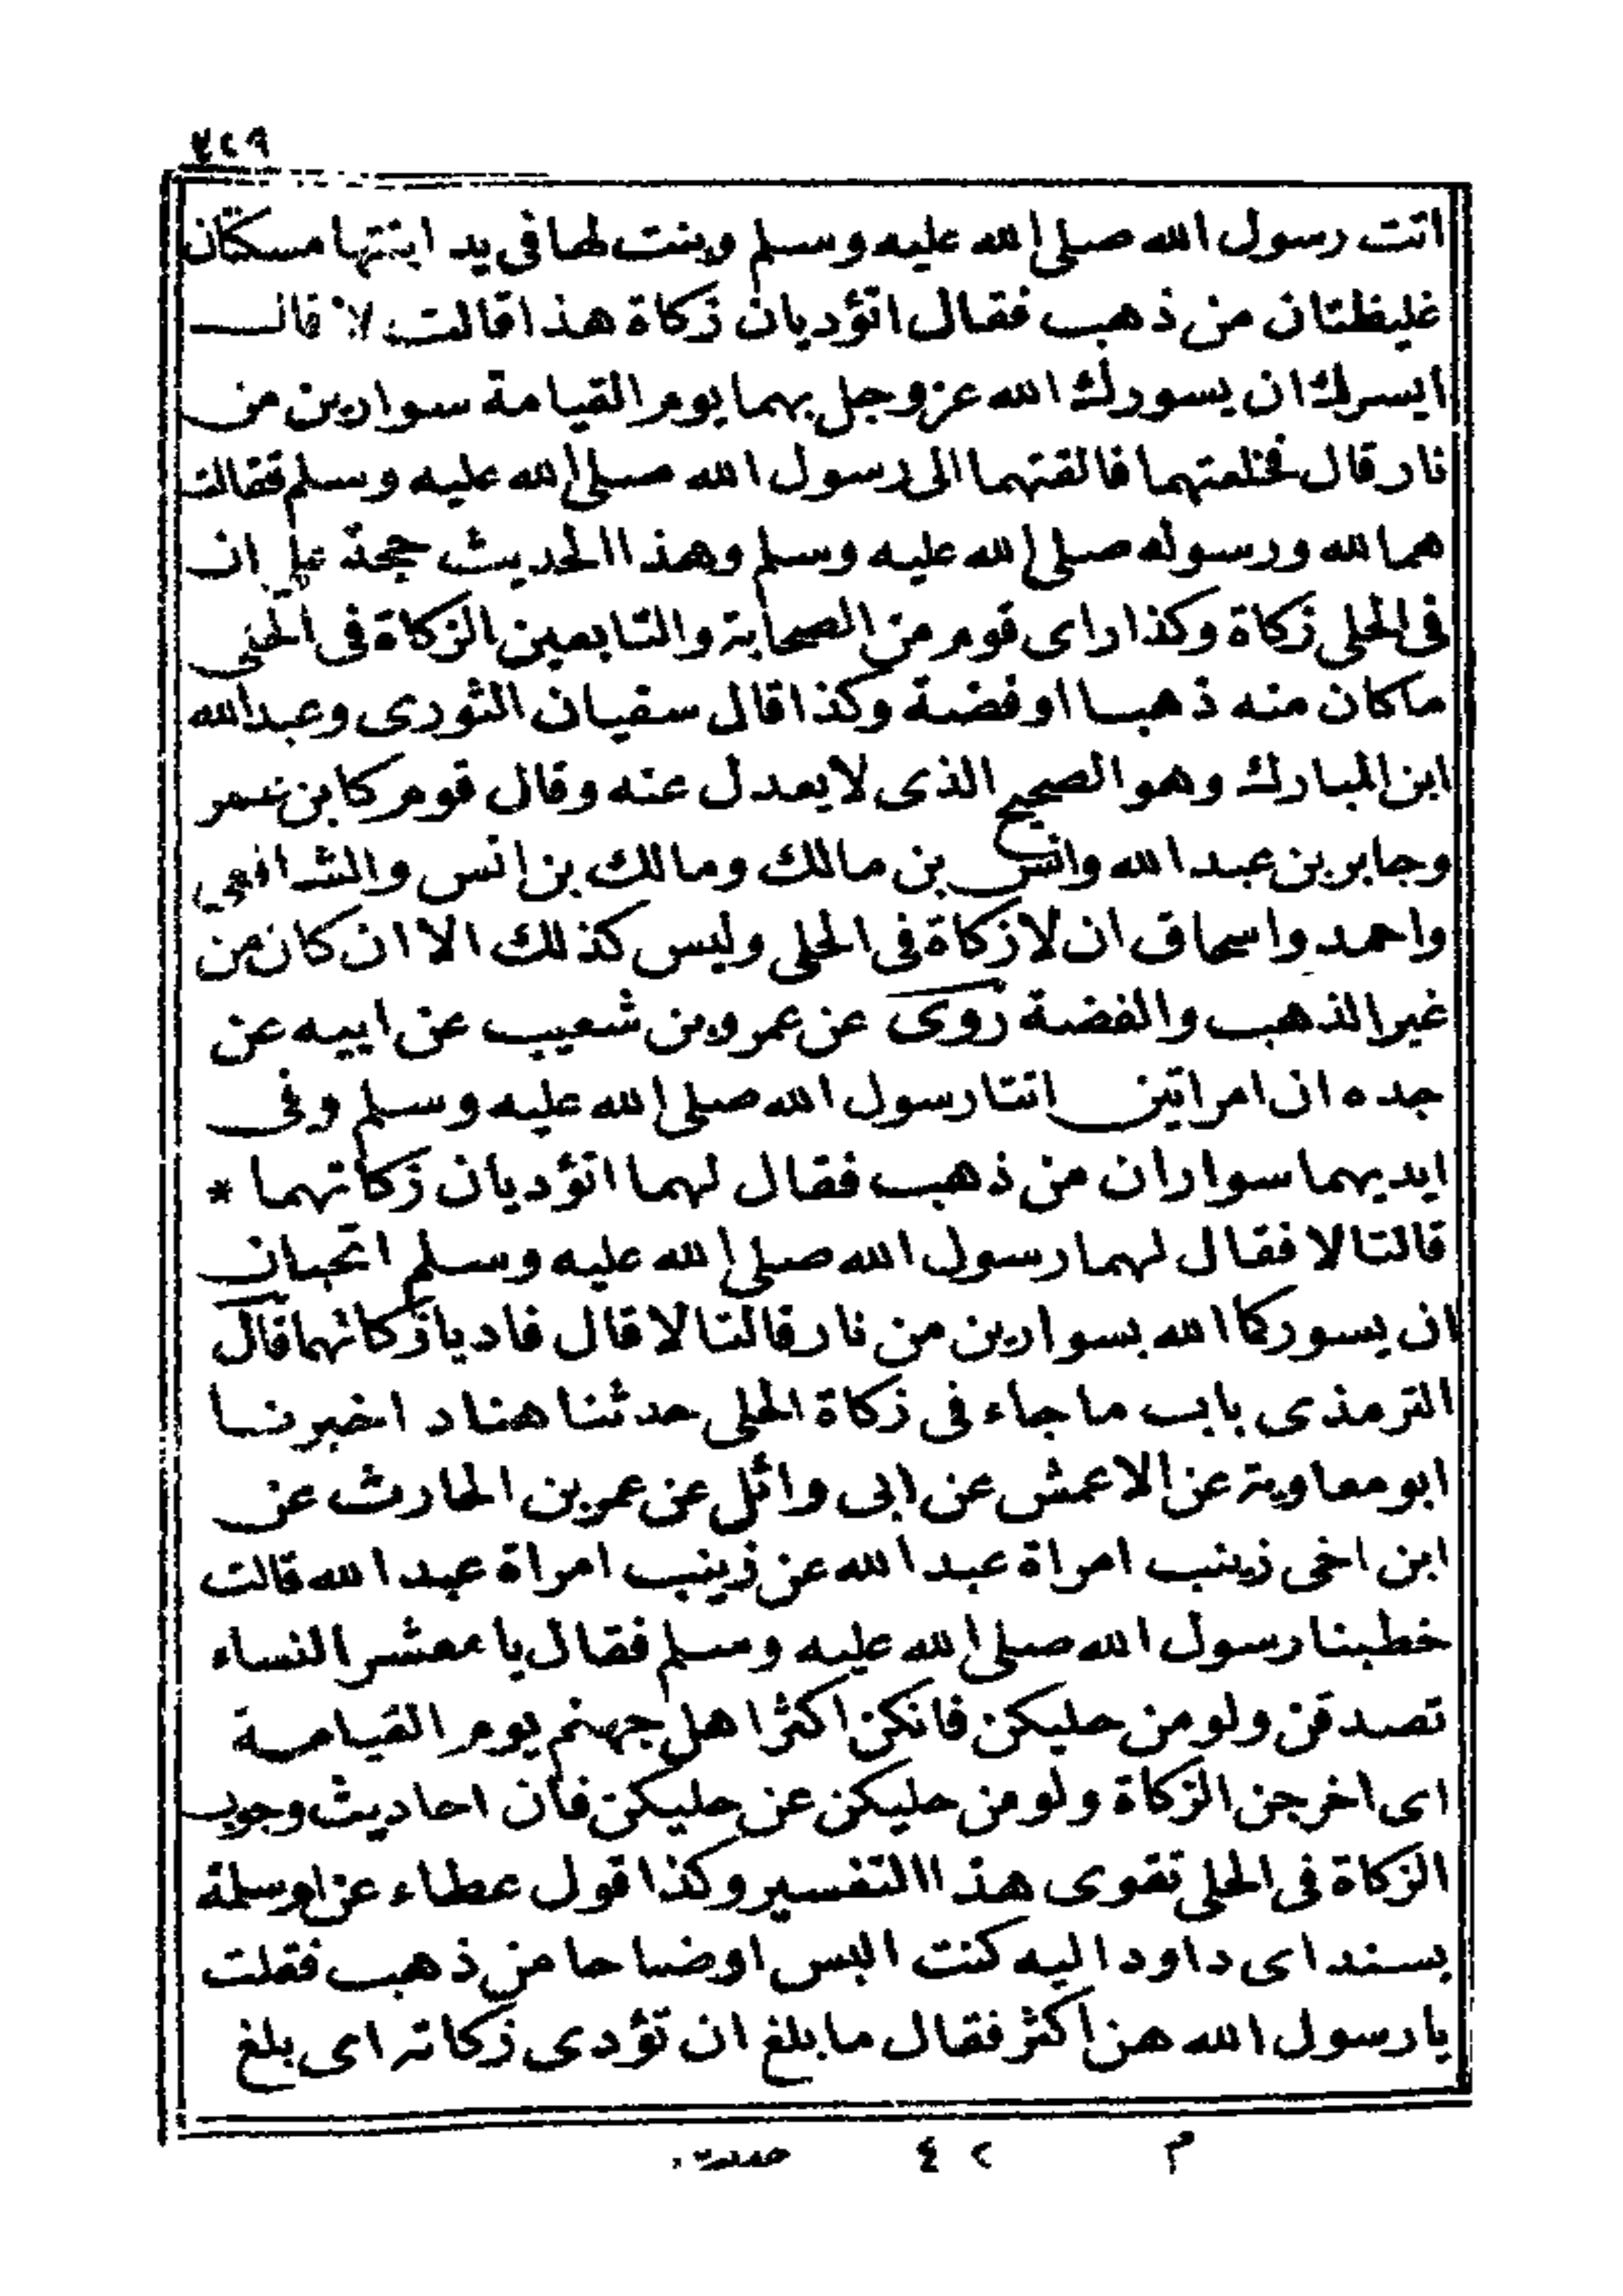 ٧٤٩
اتت رسول الله صلى الله عليه وسلم وبنت لها فى يد ابنتها مسكتان
غليظتان من ذهب فقال اتؤديان زكاة هذا قالت لا قالــ
ايسرك ان يسورك الله عز وجل بهما يوم القيامة سوارين من
نار قال فخلعتهما فالقتهما الى رسول الله صلى الله عليه وسلم فقالت
هما لله ورسوله صلى الله عليه وسلم وهذا الحديث حجة على ان
فى الحلى زكاة وكذا راى قوم من الصحابة والتابعين الزكاة فى الحلى
ماكان منه ذهبا او فضة وكذا قال سفيان الثورى وعبدالله
ابن المبارك وهو الصحيح الذى لا يعدل عنه وقال قوم كابن عمر
وجابر بن عبد الله وانس بن مالك ومالك بن انس والشافعى
واحمد واسحاق ان لا زكاة فى الحلى وليس كذلك الا ان كان من
غير الذهب والفضة روى عن عمرو بن شعيب عن ابيه عن
جده ان امراتين اتتا رسول الله صلى الله عليه وسلم وفى
ايديهما سواران من ذهب فقال لهما اتؤديان زكاتهما *
قالتا لا فقال لهما رسول الله صلى الله عليه وسلم اتحبان
ان يسوركما الله بسوارين من نار قالتا لا قال فاديا زكاتهما قال
الترمذى باب ما جاء فى زكاة الحلى حدثنا هناد اخبرنا
ابو معاوية عن الاعمش عن ابى وائل عن عمر بن الحارث عن
ابن اخى زينب امراة عبد الله عن زينب امراة عبد الله قالت
خطبنا رسول الله صلى الله عليه وسلم فقال يا معشر النساء
تصدقن ولو من حليكن فانكن اكثر اهل جهنم يوم القيامة
اى اخرجن الزكاة ولو من حليكن عن حليكن فان احاديث وجوب
الزكاة فى الحلى تقوى هذا التفسير وكذا قول عطاء عن ام سلمة
بسند اى داود اليه كنت البس اوضاحا من ذهب فقلت
يا رسول الله هن اكثر فقال ما بلغ ان تؤدى زكاته اى بلغ
م ٢ ٤